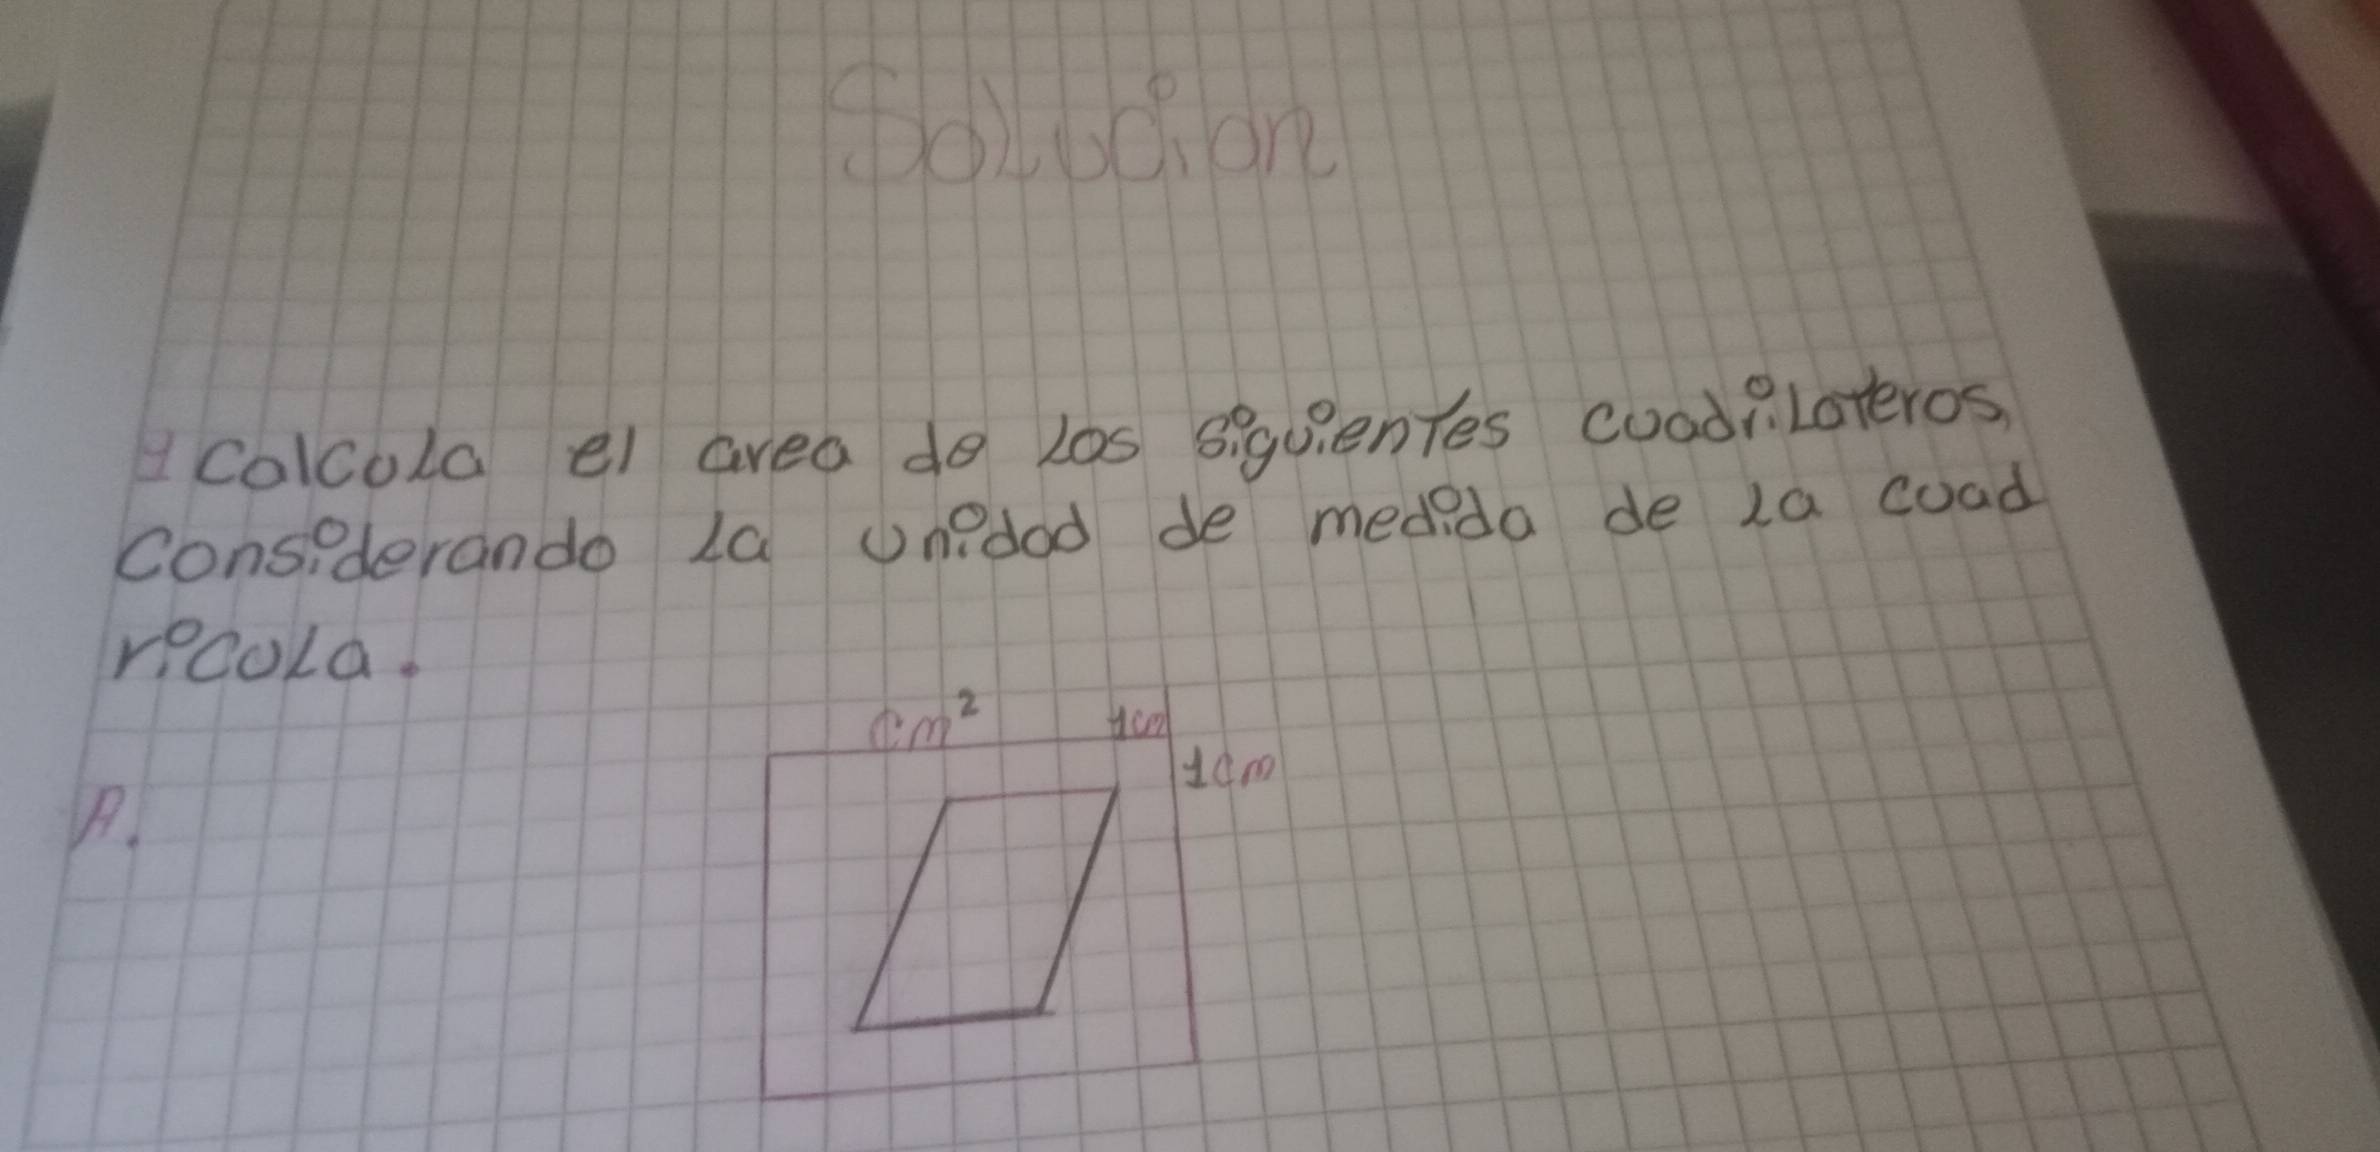 Solucion
1 Calcula el area de los siguientes cuadrilateros,
Considerando la unidad de medida de la cuad
ricula.
cm² 1cm
1cm
A.